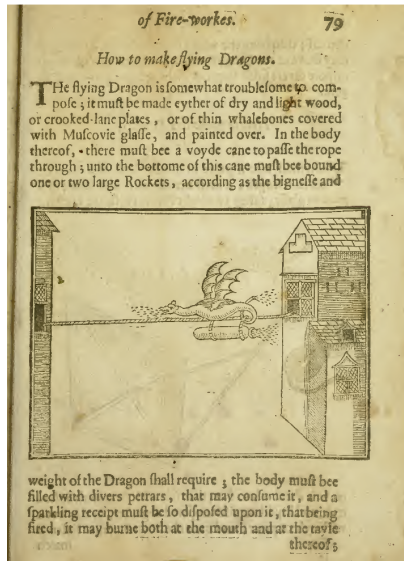 of Fire-workes. 79
How to make flying Dragons.
THe flying Dragon is somewhat troublesome to com-
pose ; it must be made eyther of dry and light wood,
or crooked-lane plates , or of thin whalebones covered
with Muscovie glasse, and painted over. In the body
thereof, there must bee a voyde cane to passe the rope
through ; unto the bottome of this cane must bee bound
one or two large Rockets , according as the bignesse and
weight of the Dragon shall require ; the body must bee
filled with divers petrars , that may consume it , and a
sparkling receipt must be so disposed upon it , that being
fired , it may burne both at the mouth and at the tayle
thereof ;